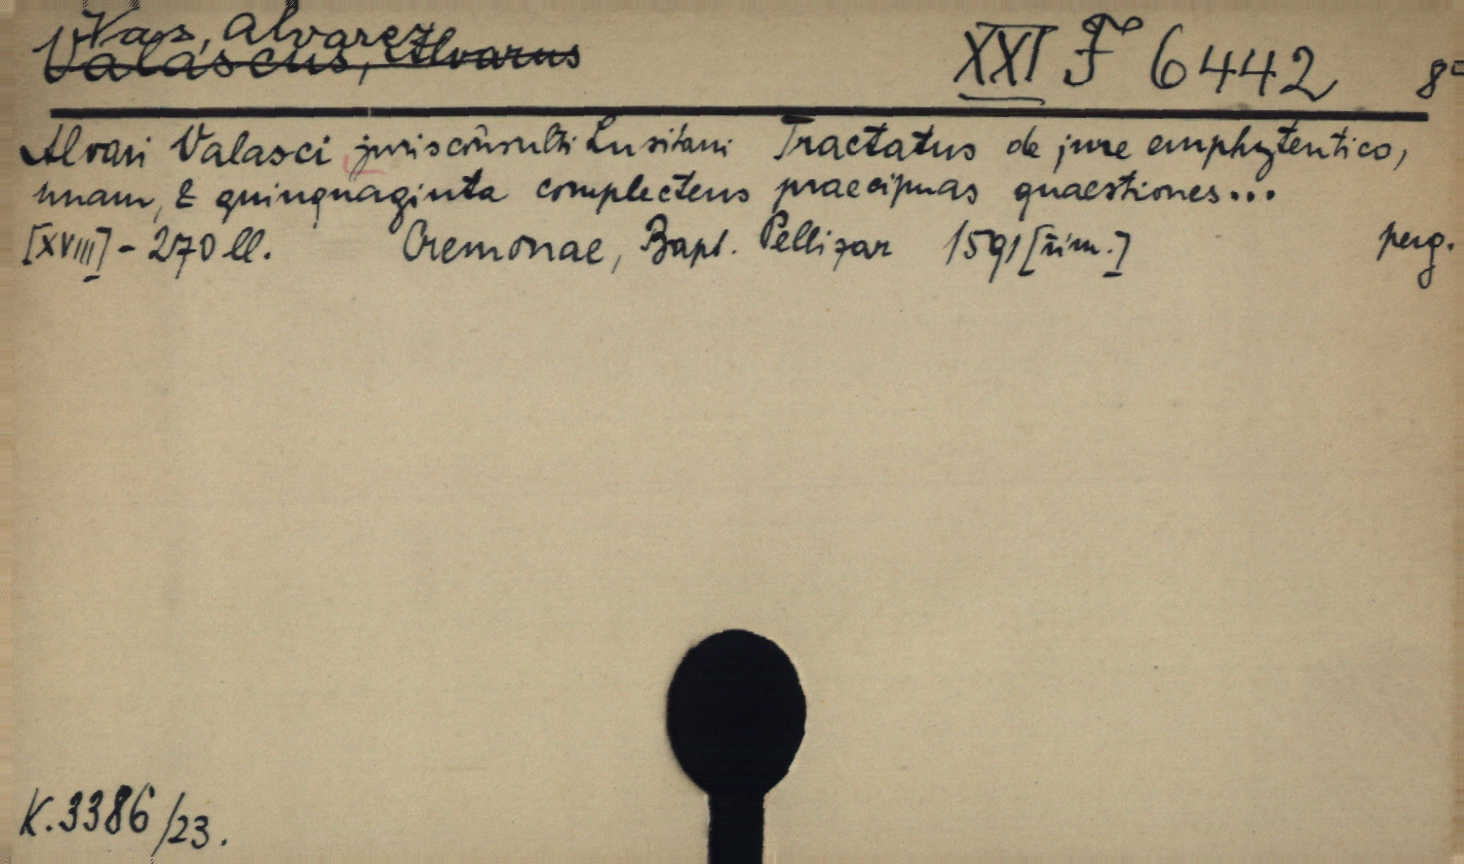 Vaz, Alvarez
Valascus, Alvarus
XXI F 6442 8°
Alvari Valasci jurisconsulti Lusitani Tractatus de jure emphyteutico,
unam, & quinquaginta complectens praecipuas quaestiones...
[XVIII] - 270 ll. Cremonae, Bapt. Pellizar 1591 [rim.] perg.
K. 3386/23.